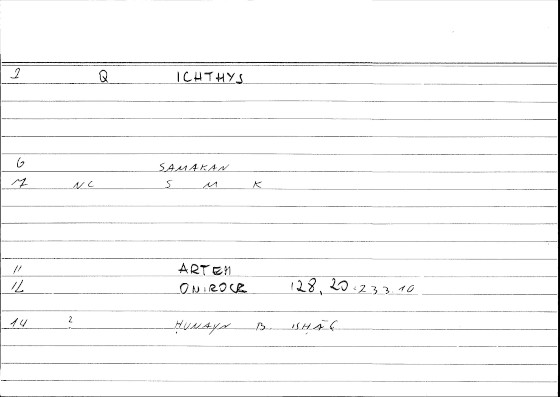 1 Q ICHTHYS
6 SAMAKAN
7 NC S M K
11 ARTEM
12 ONIROCR 128, 20.233.10
14 ? ḤUNAYN B. ISḤĀQ